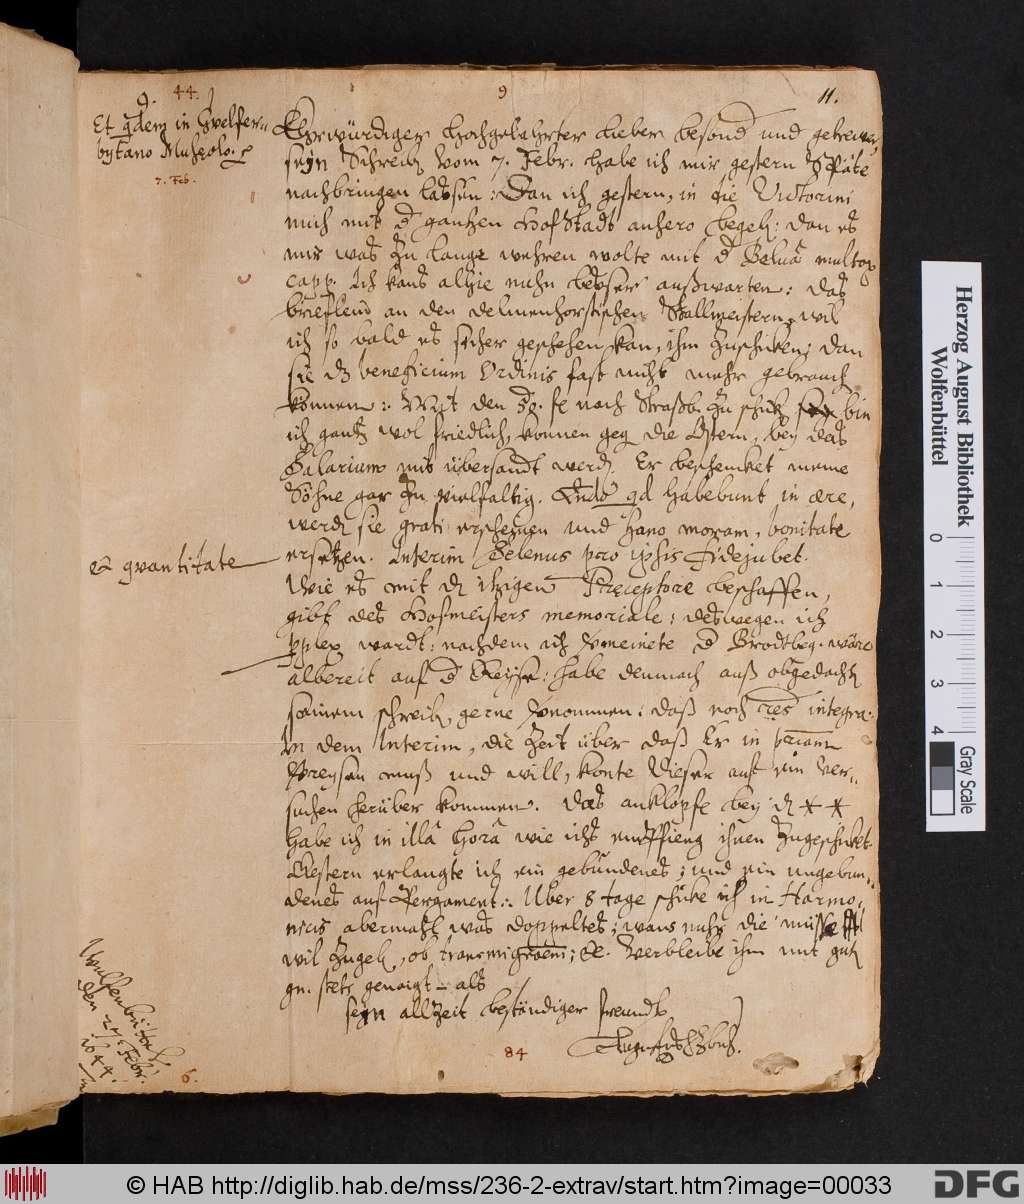 44.
9.
9
11.
Et qdem in Guelfer-
bytano Musæolo.
7. Feb.
Ehrwürdiger Hochgelahrter Lieber besond und getrewer,
seyn Schreib vom 7. Febr. habe ich mir gestern Späte
nachbringen laßen: Dan ich gestern, in die Victorini
mich mit d gantzen HofStadt anhero begeb: dan es
mir was zu lange wehren wolte mit d Belua multor
capp. Ich kans alhie nuhn beßer außwarten: das
brieflein an den delmenhorstischen Stallmeistern, wil
ich so bald es sicher geschehen kan, ihm zuschicken; dan
sie dz beneficium Ordinis fast nicht mehr gebrauch
können: Mit den 50. fl nach Straßb. zu schick bin
ich gantz wol friedlich, konnen geg die Ostern, bey das
Salarium mit übersandt werd. Er beschencket meine
Söhne gar zu vielfaltig. Endo qd habebunt in ære,
werd sie grati erscheinen und hanc moram, bonitate
& quantitate
ersetzen. Interim Selenus pro ipsis fidejubet.
Wie es mit d itzigen Præceptore beschaffen,
gibt des Hofmeisters memoriale; deswegen ich
pplex wardt: nachdem ich vermeinete d Brodtbeg. wäre
albereit auf d Reyse: habe demnach auß obgedacht
seinem schreib, gerne vernommen: daß noch res integra.
In dem Interim, die Zeit über daß Er in
verreysen muß und will, konte dieser auf ein ver-
suchen herüber kommen. Das anklopfe bey d * *
habe ich in illâ horâ wie ichs empfieng ihnen zugeschicket.
Gestern erlangte ich ein gebundenes; und ein ungebun-
denes auf Pergament. Uber 8 tage schicke ich in Harmo-
nicis abermahl was doppeltes; wans nuhr die
wil zugeb, ob transmigrationem; &c. Verbleibe ihm mit gut
gn. stets genaigt als
seyn allzeit beständiger freundt
Augustus HzbuL.
Wulfenbüttel
den 27 Febr.
1644.
6.
84
Herzog August Bibliothek
Wolfenbüttel
0 1 2 3 4
Gray Scale
© HAB http://diglib.hab.de/mss/236-2-extrav/start.htm?image=00033
DFG